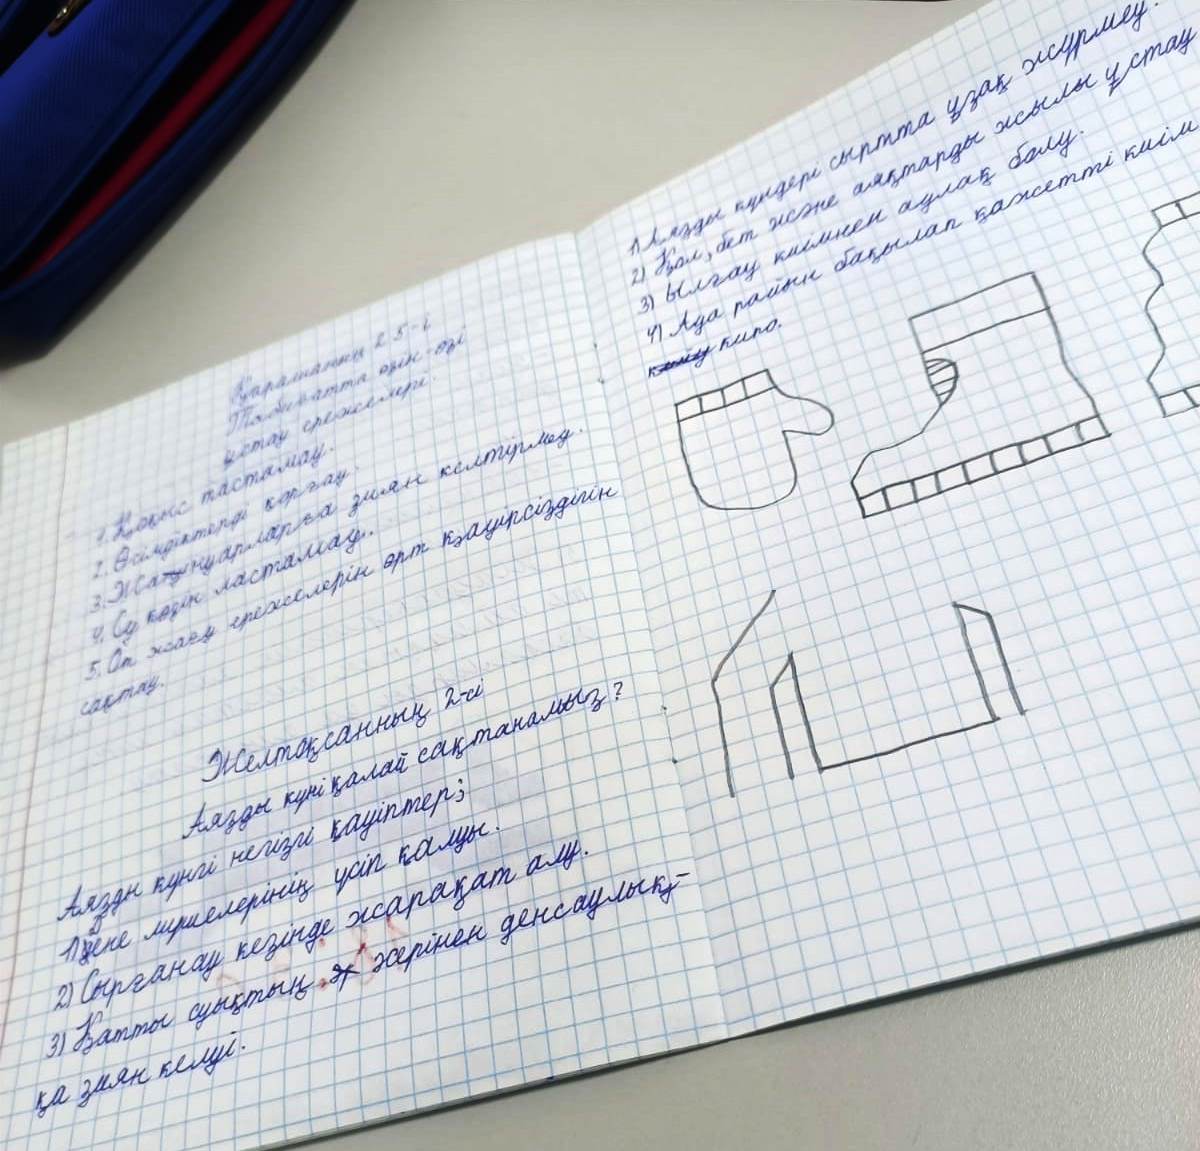 Қарашаның 25-і
Табиғатта өзін-өзі
ұстау ережелері.
1. Қоқыс тастамау.
2. Өсімдіктерді қорғау.
3. Жануарларға зиян келтірмеу.
4. Су көзін ластамау.
5. От жағу ережелерін өрт қауіпсіздігін
сақтау.
Желтоқсанның 2-сі
Аязды күні қалай сақтанамыз?
Аязды күнгі негізгі қауіптер;
1) Дене мүшелерінің үсіп қалуы.
2) Сырғанау кезінде жарақат алу.
3) Қатты суықтың әсерінен денсаулық-
қа зиян келуі.
1) Аязды күндері сыртта ұзақ жүрмеу.
2) Қол, бет және аяқтарды жылы ұстау
3) Ылғау киімнен аулақ болу.
4) Ауа райын бақылап қажетті киім
кию.